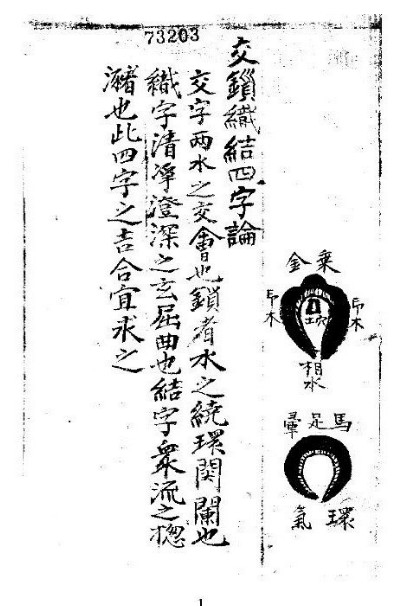 73203
乗金
印木
土穴
印木
相水
馬足暈
環氣
交鎖織結四字論
交字两水之交會也鎖者水之繞環関闌也
織字清淨澄深之玄屈曲也結字衆流之揔
瀦也此四字之吉合宜求之
1